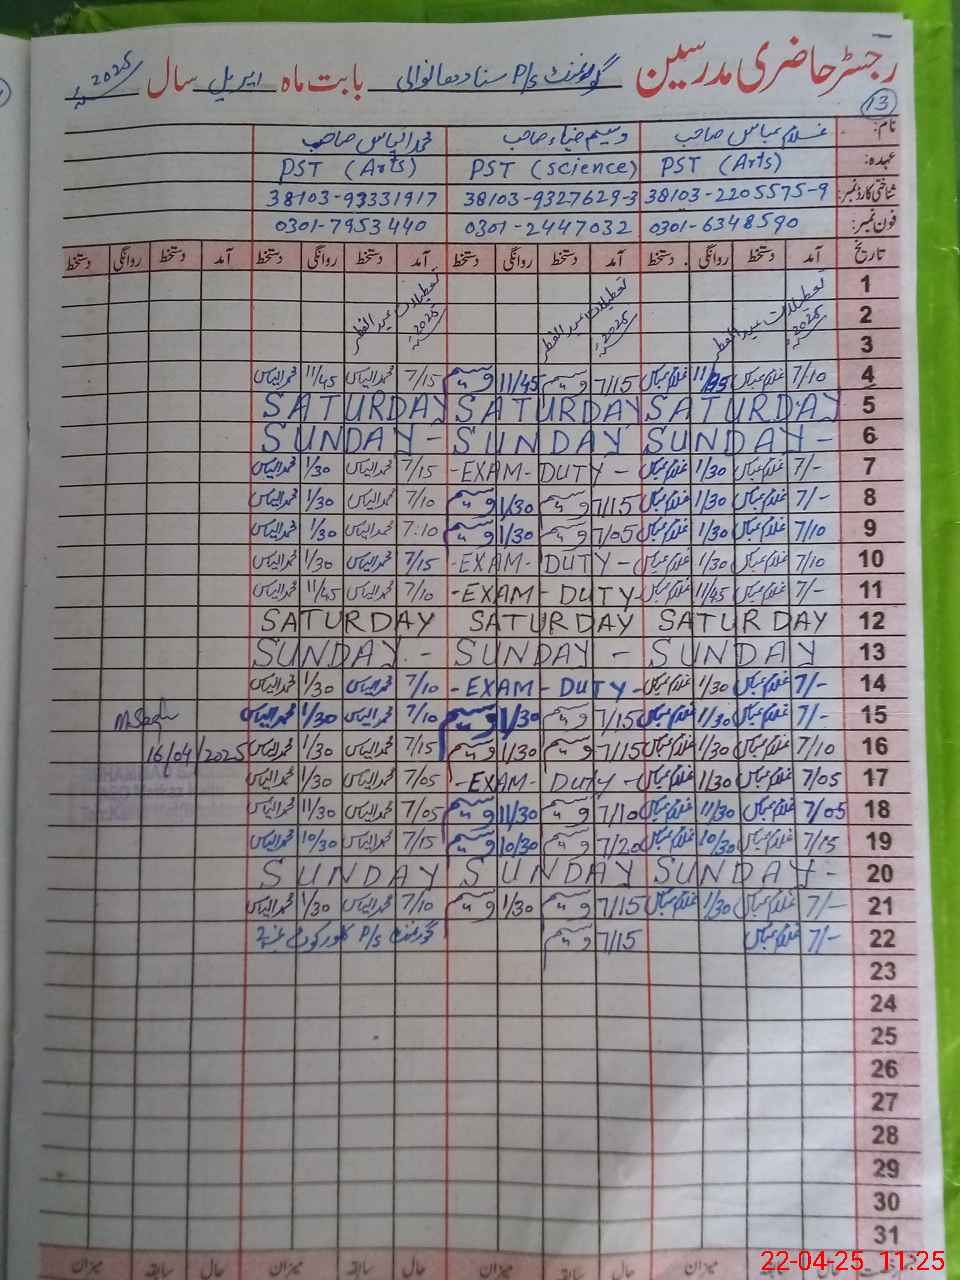 رجسٹر حاضری مدرسین گورنمنٹ P/s سنادھانوالی بابت ماہ اپریل سال 2025ء
13
نام: غلام عباس صاحب وسیم ضیاء صاحب محمد الیاس صاحب
عہدہ: PST (Arts) PST (science) PST (Arts)
شناختی کارڈ نمبر: 38103-2205575-9 38103-9327629-3 38103-93331917
فون نمبر: 0301-6348590 0301-2447032 0301-7953440
تاریخ آمد دستخط روانگی دستخط آمد دستخط روانگی دستخط آمد دستخط روانگی دستخط آمد دستخط روانگی دستخط
1 تعطیلات عید الفطر 2025ء تعطیلات عید الفطر 2025ء تعطیلات عید الفطر 2025ء
2
3
4 7/10 غلام عباس 11/45 غلام عباس 7/15 11/45 7/15 محمد الیاس 11/45 محمد الیاس
5 SATURDAY SATURDAY SATURDAY
6 SUNDAY - SUNDAY SUNDAY -
7 7/- غلام عباس 1/30 غلام عباس - EXAM - DUTY - 7/15 محمد الیاس 1/30 محمد الیاس
8 7/- غلام عباس 1/30 غلام عباس 7/15 1/30 7/10 محمد الیاس 1/30 محمد الیاس
9 7/10 غلام عباس 1/30 غلام عباس 7/05 1/30 7:10 محمد الیاس 1/30 محمد الیاس
10 7/10 غلام عباس 1/30 غلام عباس - EXAM - DUTY - 7/15 محمد الیاس 1/30 محمد الیاس
11 7/- غلام عباس 11/45 غلام عباس - EXAM - DUTY - 7/10 محمد الیاس 11/45 محمد الیاس
12 SATURDAY SATURDAY SATURDAY
13 SUNDAY SUNDAY - SUNDAY -
14 7/- غلام عباس 1/30 غلام عباس - EXAM - DUTY - 7/10 محمد الیاس 1/30 محمد الیاس
15 7/- غلام عباس 1/30 غلام عباس 7/15 1/30 7/10 محمد الیاس 1/30 محمد الیاس
16 7/10 غلام عباس 1/30 غلام عباس 7/15 1/30 7/15 محمد الیاس 1/30 محمد الیاس 16/04/2025
17 7/05 غلام عباس 1/30 غلام عباس - EXAM - DUTY - 7/05 محمد الیاس 1/30 محمد الیاس
18 7/05 غلام عباس 11/30 غلام عباس 7/10 11/30 7/05 محمد الیاس 11/30 محمد الیاس
19 7/15 غلام عباس 10/30 غلام عباس 7/20 10/30 7/15 محمد الیاس 10/30 محمد الیاس
20 SUNDAY - SUNDAY SUNDAY
21 7/- غلام عباس 1/30 غلام عباس 7/15 1/30 7/10 محمد الیاس 1/30 محمد الیاس
22 7/- غلام عباس 7/15 گورنمنٹ P/s کلورکوٹ
23
24
25
26
27
28
29
30
31
حال سابقہ میزان حال سابقہ میزان حال سابقہ میزان حال سابقہ میزان
22-04-25 11:25